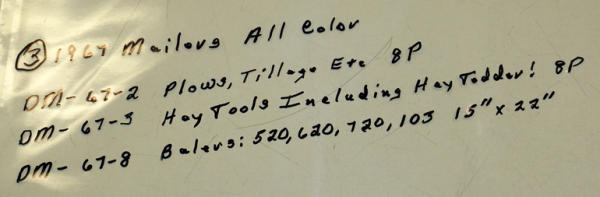 ③ 1967 Mailers All Color
DM-67-2 Plows, Tillage Etc 8P
DM-67-3 Hay Tools Including Hay Tedder! 8P
DM-67-8 Balers: 520, 620, 720, 103 15" x 22"